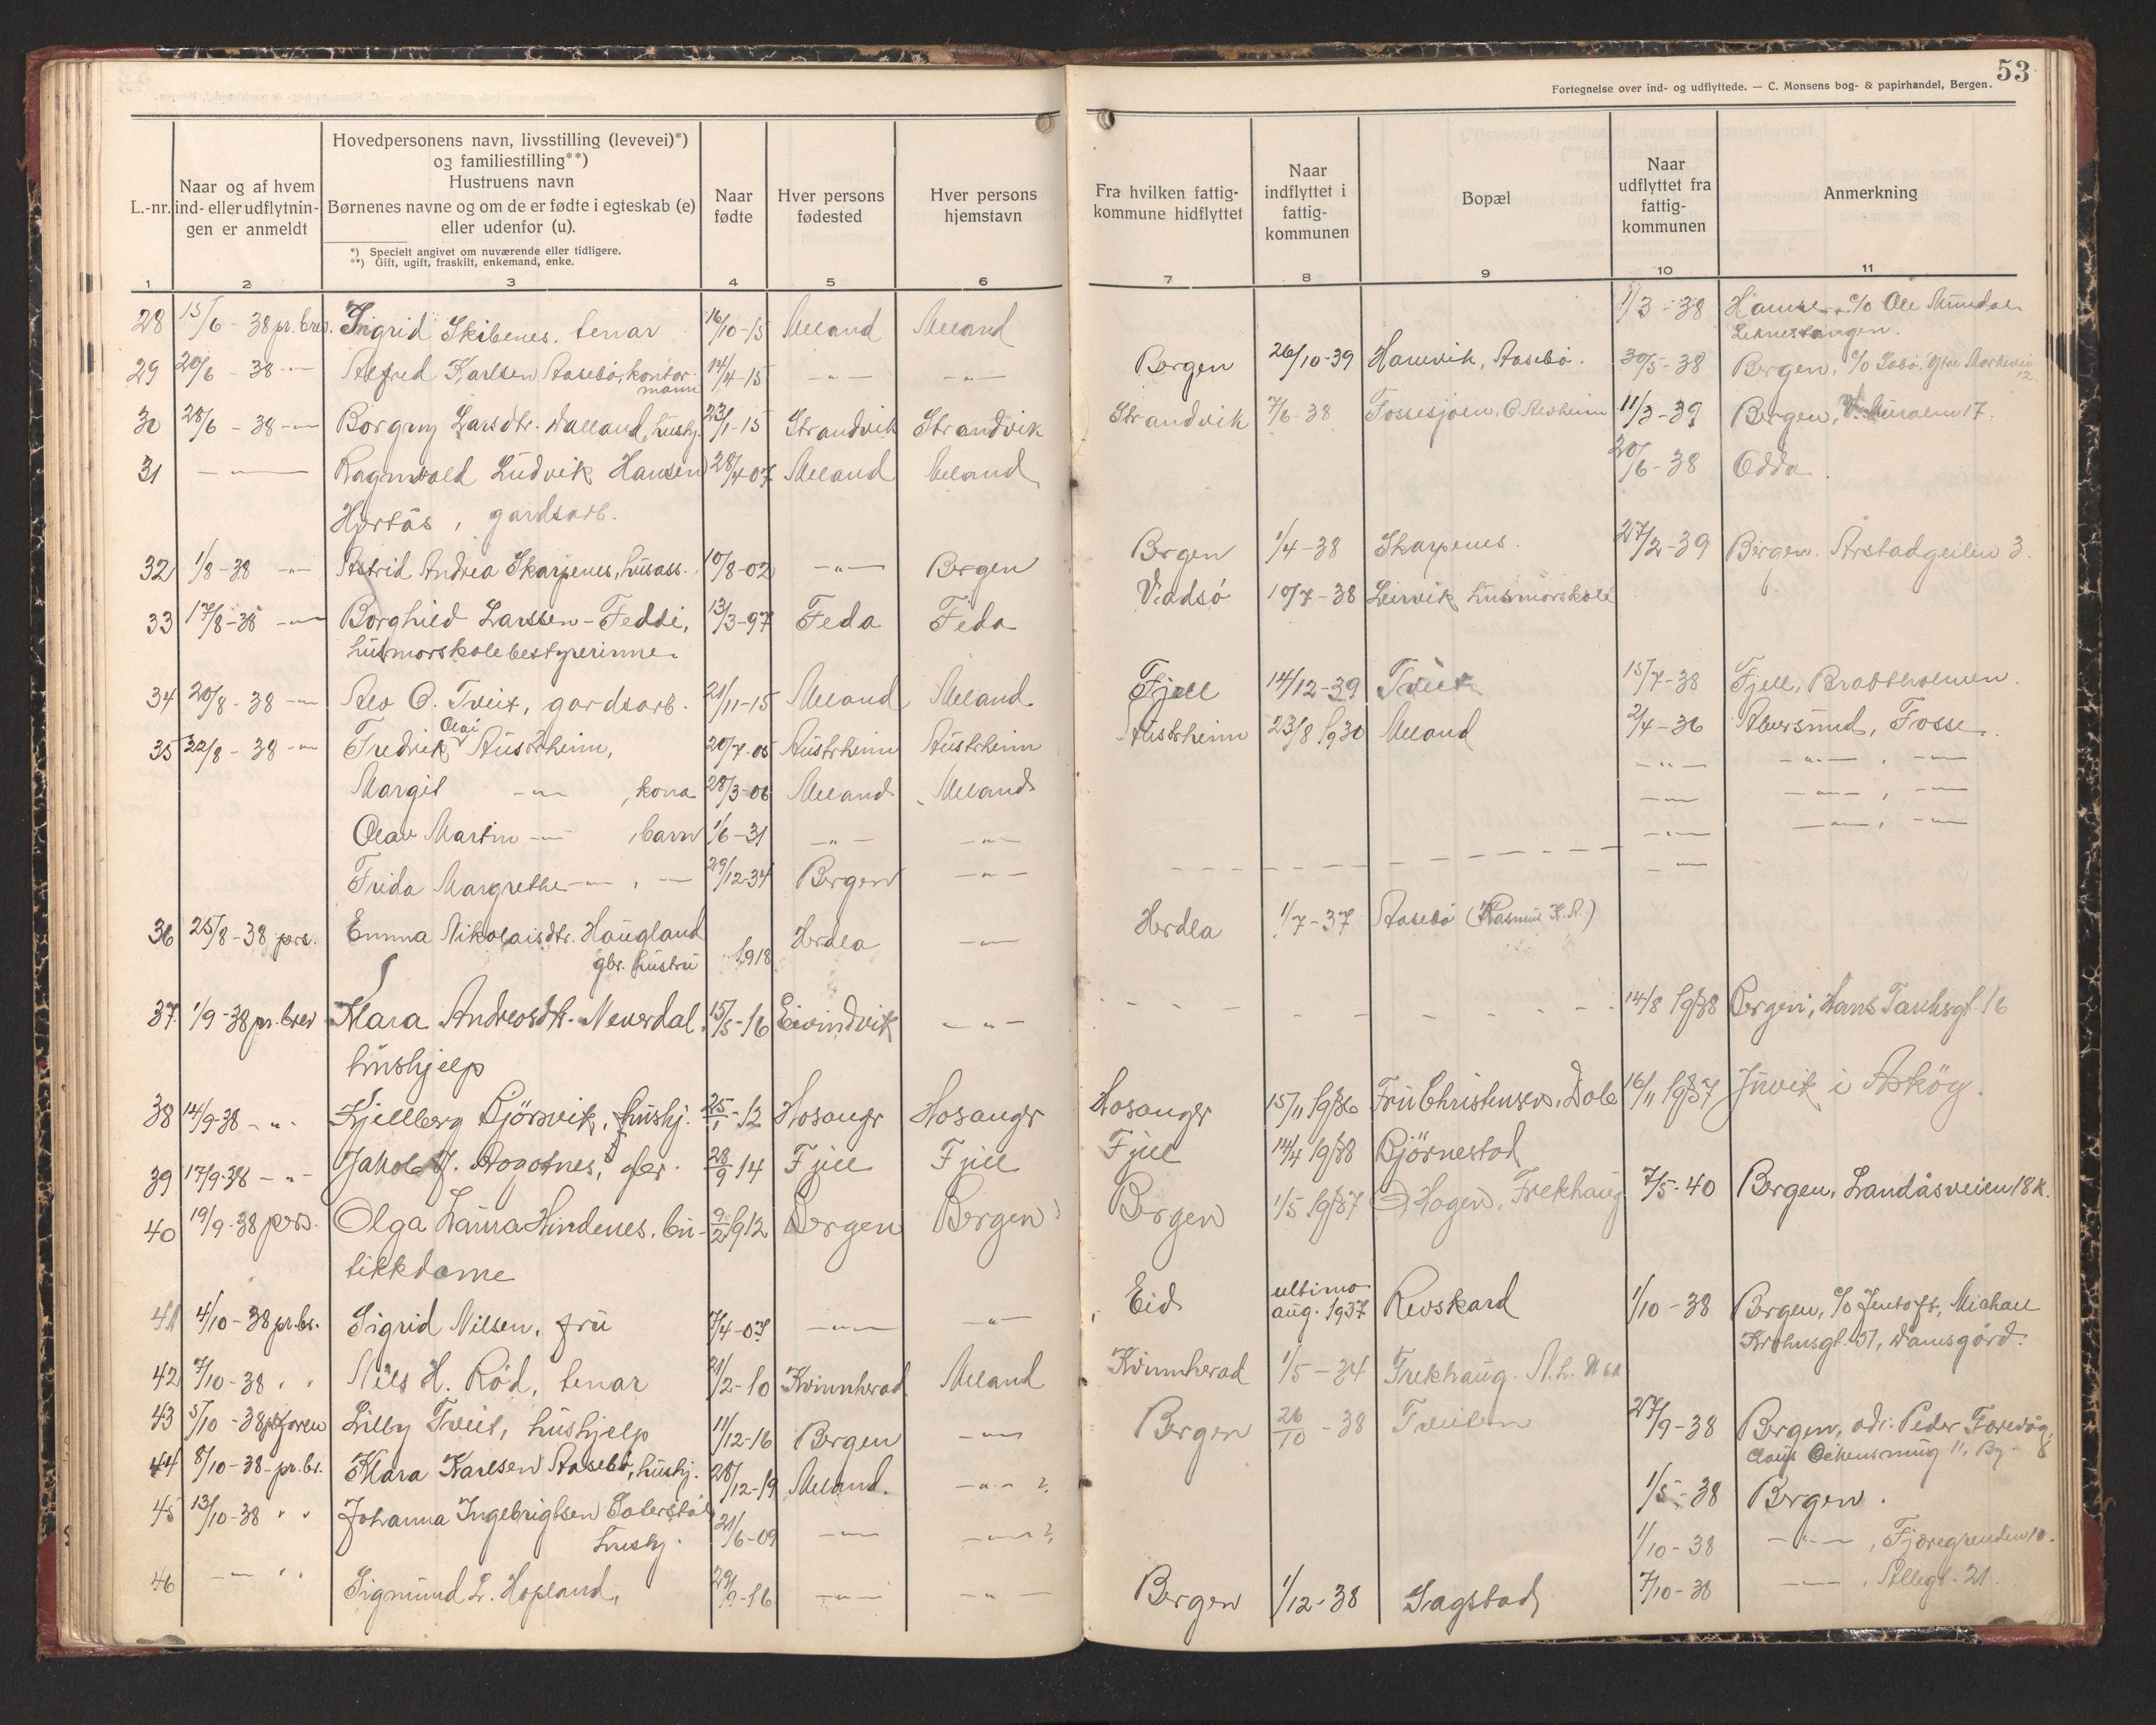 53
Fortegnelse over ind- og udflyttede. — C. Monsens bog- & papirhandel, Bergen.
L.-nr.
Naar og af hvem
ind- eller udflytnin-
gen er anmeldt
Hovedpersonens navn, livsstilling (levevei)*)
og familiestilling**)
Hustruens navn
Børnenes navne og om de er fødte i egteskab (e)
eller udenfor (u).
*) Specielt angivet om nuværende eller tidligere.
**) Gift, ugift, fraskilt, enkemand, enke.
Naar
fødte
Hver persons
fødested
Hver persons
hjemstavn
Fra hvilken fattig-
kommune hidflyttet
Naar
indflyttet i
fattig-
kommunen
Bopæl
Naar
udflyttet fra
fattig-
kommunen
Anmerkning
1 2 3 4 5 6 7 8 9 10 11
28 15/6 - 38 pr. brev. Ingrid Skibenes, tenar 16/10-15 Meland Meland 1/3 - 38 c/o Ole
29 20/6 - 38 -"- Alfred Karlsen Aasebö, kontor- 14/4-15 -"- -"- Bergen 26/10-39 Hamvik, Aasebö. 30/5-38 Bergen, c/o
mann 12.
30 28/6 - 38 -"- Borgny Larsdtr. Walland, hushj. 23/1-15 Strandvik Strandvik Strandvik 7/6-38 Fossesjoen, 11/3-39 Bergen, 17.
31 -"- Ragnvald Ludvik Hansen 28/4-07 Meland Meland 20/6-38 Odda.
Hjertås, gardsarb.
32 1/8-38 -"- Astrid Andrea Skarpenes, husass. 10/8-02 -"- Bergen Bergen 1/4-38 Skarpenes. 27/2-39 Bergen. Årstadgeilen 3.
33 17/8-38 -"- Borghild Larssen-Feddi, 13/3-97 Feda Feda Vadsö 10/7-38 Leirvik husmorskole
husmorskolebestyrerinne.
34 20/8-38 -"- Alv O. Tveit, gardsarb. 21/11-15 Meland Meland Fjell 14/12-39 Tveit 15/7-38 Fjell, Brattholmen.
Olai
35 22/8-38 -"- Fredrik Austrheim, 20/7-05 Austrheim Austrheim Austrheim 23/8 1930 Meland 2/4-36 Alversund, Fosse.
Margit -"- , kona 28/3-06 Meland Meland -"- -"- , -"-
Olav Martin -"- , barn 1/6-31 -"- -"- -"- -"- , -"-
Frida Margrethe -"- , -"- 29/12-34 Bergen -"- -"- -"- , -"-
36 25/8-38 pers. Emma Nikolaisdtr. Haugland 1918 Herdla -"- Herdla 1/7-37 Aasebö (Rasmus K. A.)
gbr. hustru
37. 1/9-38 pr. brev Klara Andreasdtr. Neverdal, 15/5-16 Eivindvik -"- 14/8 1938 Bergen, Hans Tanksgt. 16
hushjelp
38 14/9-38 -"- Kjellberg Björsvik, hushj. 25/1-12 Hosanger Hosanger Hosanger 15/11 1936 Fru Christensen, Dale 16/11 1937 Juvik i Asköy.
39 17/9-38 -"- Jakob J. Aogotnes, 28/9 14 Fjell Fjell Fjell 14/4 1938 Björnestad
40 19/9-38 pers. Olga Laura Hindenes, bu- 9/2 1912 Bergen Bergen Bergen 1/5 1937 Hagen, Frekhaug 7/5-40 Bergen, Landåsveien 18 K.
tikkdame
41 4/10-38 pr. br. Sigrid Nilsen, fru 7/4-07 -"- -"- Eid ultimo Revskard 1/10-38 Bergen, c/o Jentoft, Michael
aug. 1937 Krohnsgt. 51, Damsgård.
42 7/10-38 " " Nils H. Röd, tenar 21/2-10 Kvinnherad Meland Kvinnherad 1/5-34 Frekhaug.
43 5/10-38 Lilly Tveit, hushjelp 11/12-16 Bergen -"- Bergen 26/10-38 Tveiten 27/9-38 Bergen, adr. Peder
44 8/10-38 pr. br. Klara Karlsen Aasebö, hushj. 28/12-19 Meland. -"- ?, 1/5-38 Bergen.
45 13/10-38 " " Johanna Ingebrigtsen 21/6-09 -"- -"- ?, 1/10-38 -"- , Fjæregrenden 10.
hushj.
46 -"- " " Sigmund L. Hopland, 29/9-16 -"- -"- Bergen 1/12-38 Sagstad 7/10-38 -"- , 21.